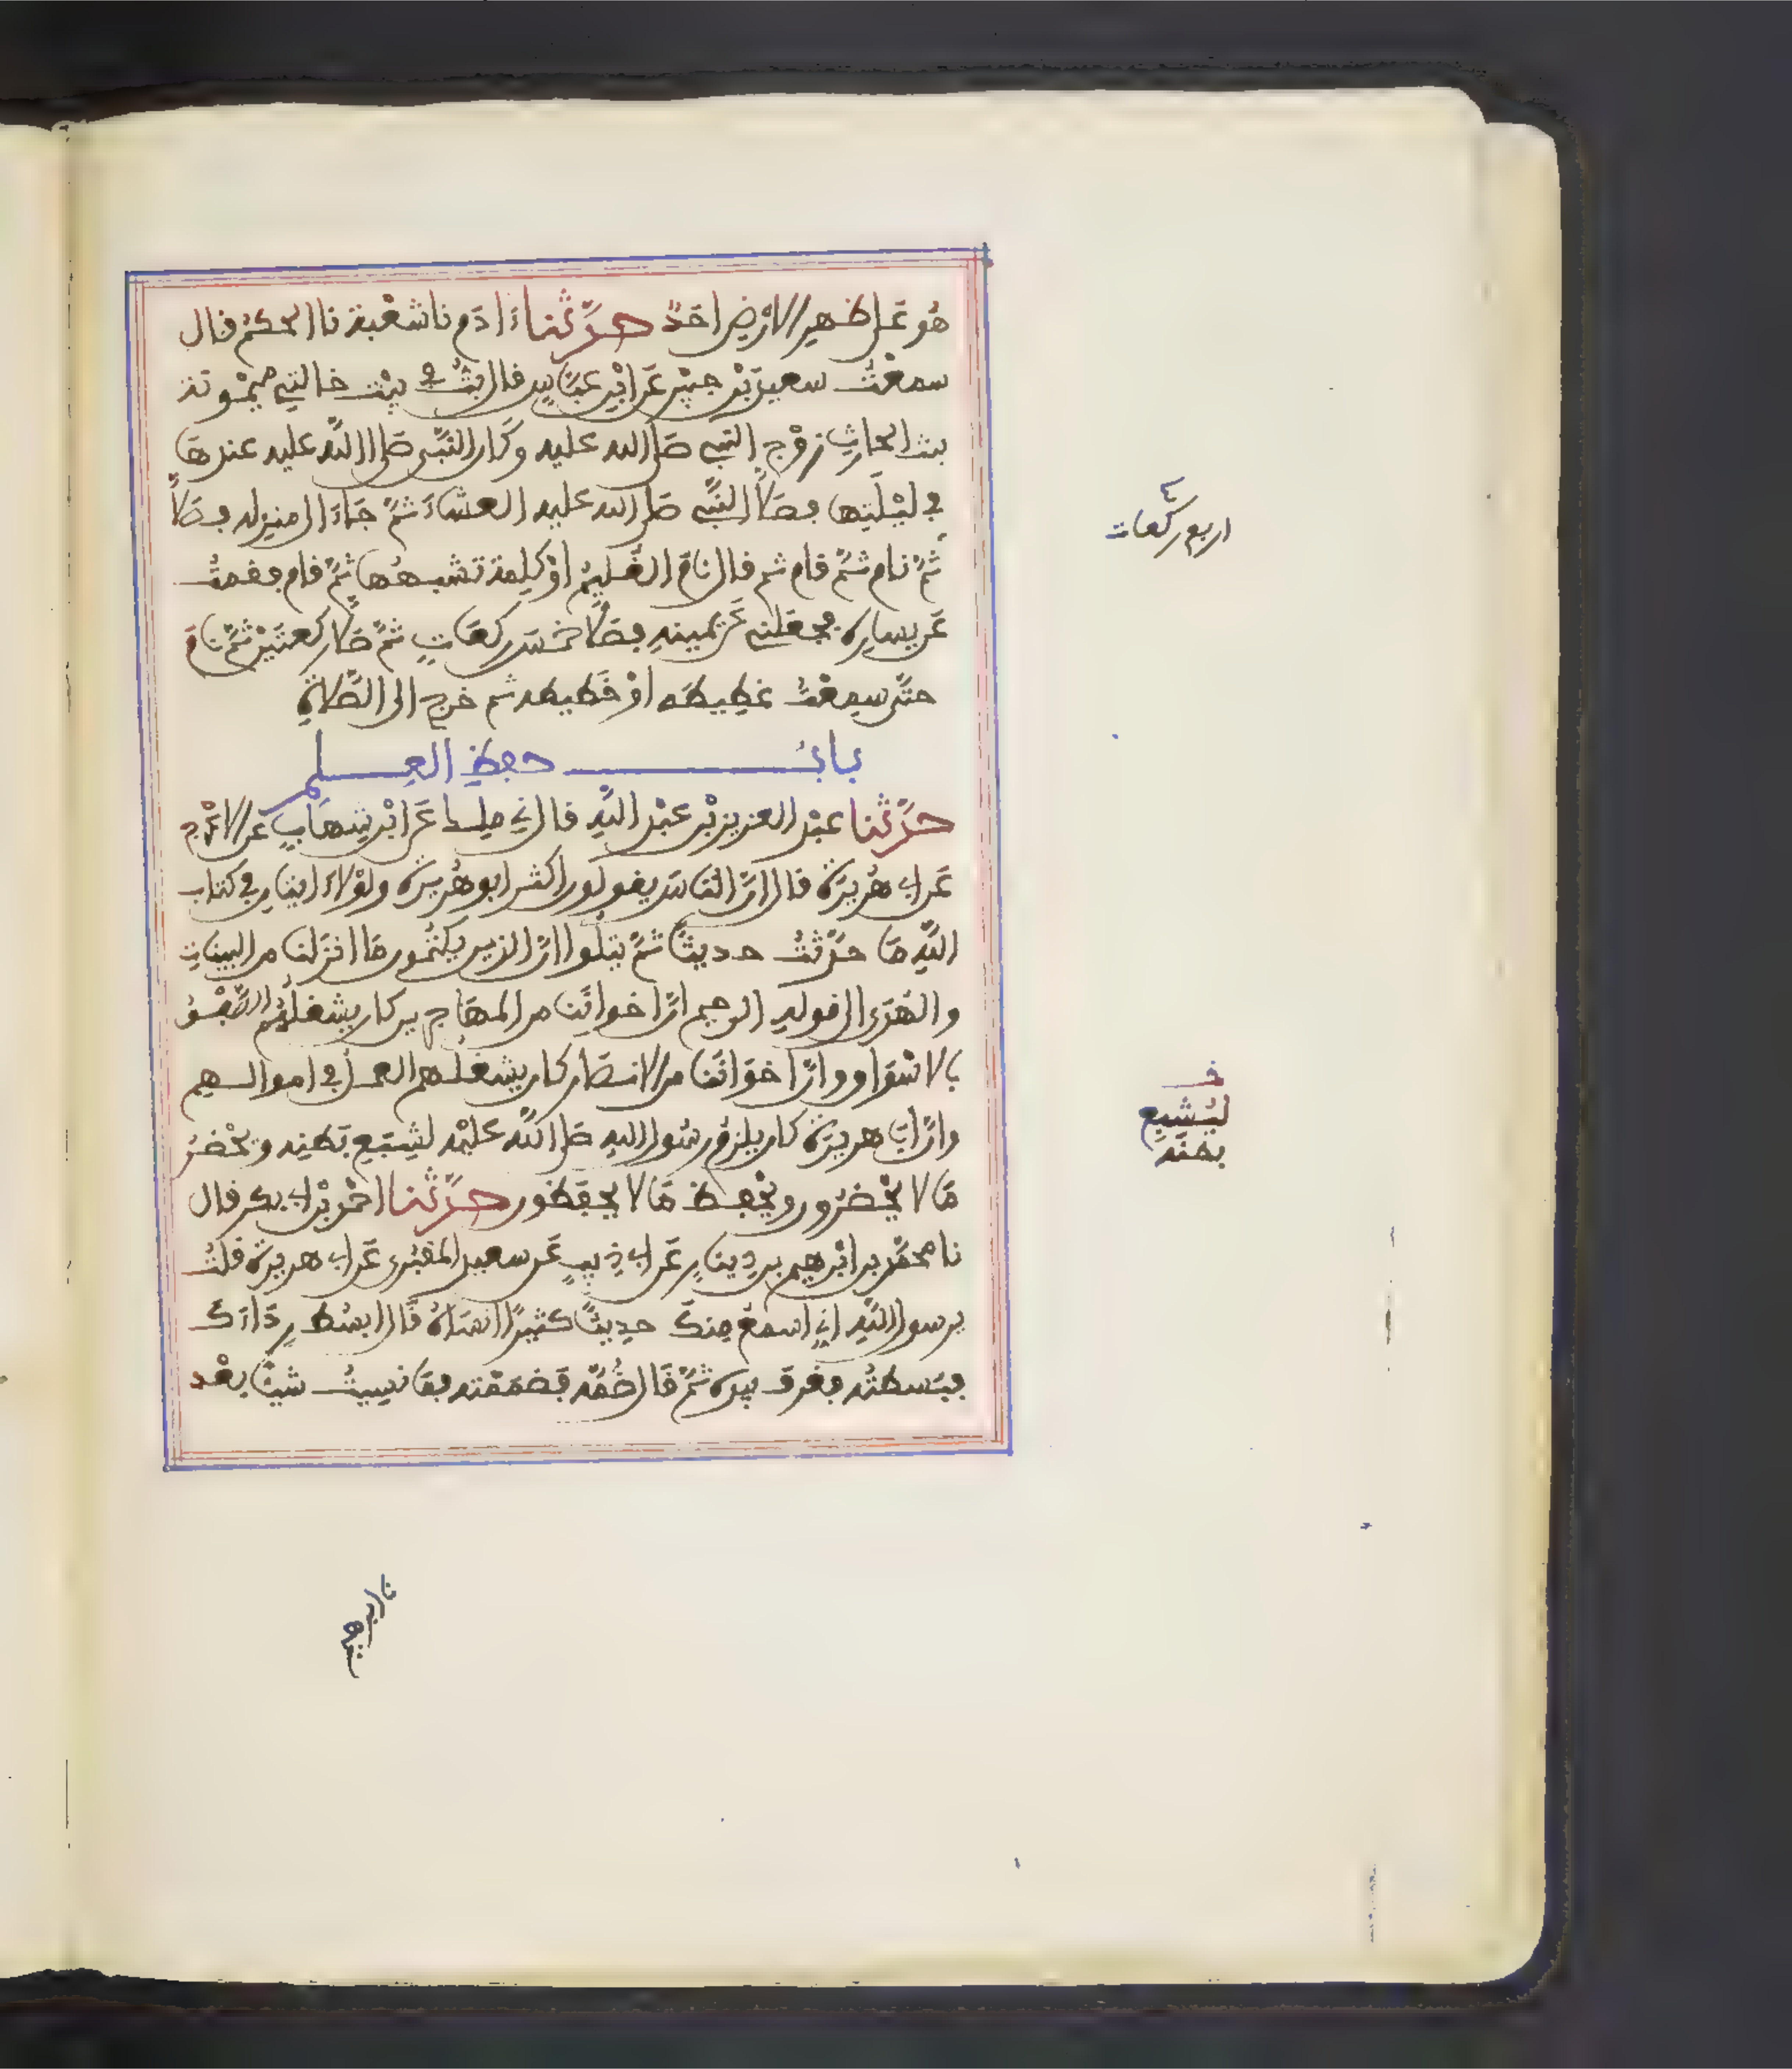 هُو عَلى ظهر الارض احَدٌ حدّثنا ءادم نا شعْبة نا الحكم قال
سمعْتُ سعيد بْن جبيْر عَن ابْن عبّاس قال بتُّ في بيْت خالتي ميمْونة
بنت الحارث زوْج النبي صَلى الله عليه وكَان النّبي صَلى اللّه عليه عندهَا
في ليْلَتِها فصَلّى النّبي صَلى الله عليه العشاءَ ثمَّ جَاءَ الى منزله فصَلّى
ثمَّ نام ثمَّ قام ثم قال نامَ الغُليّم اوْ كلِمة تشبهُها ثمَّ قام فقمتُ
عَن يساره فجعَلني عَن يمينه فصَلّى خمْسَ ركعَاتٍ ثمَّ صَلّى ركعتيْن ثمَّ نامَ
حتَّى سمعْتُ غطِيطَه اوْ خَطيطه ثم خرج الى الصَّلاةِ
بابُ حفظِ العِلم
حدّثنا عبْد العزيز بْن عبْد اللّهِ قال ني ملك عَن ابْن شهَابٍ عن الاعْرج
عَن ابي هُريْرَة قال انّ النّاسَ يقولون اكثر ابو هُريْرة ولوْلاءَ ايتانِ في كتاب
اللّهِ مَا حدّثتُ حديثاً ثمَّ يتلُوا انّ الذين يكتُمون مَا انزَلنا من البينات
والهُدَى الى قوله الرحيم انّ اخواننَا من المهَاجرين كان يشغلُهُم الصَّفْقُ
بالاسْوَاق وانّ اخوَاننَا من الانصَار كان يشغلُهم العملُ في اموالهم
وانّ ابَا هريرَة كان يلزمُ رسُول الله صَلى اللّه عليْه لشِبَعِ بَطنِه ويَحْضرُ
مَا لا يحْضرُون ويحْفظ مَا لا يحفَظون حدّثنا احْمد بْن ابي بكر قال
نا محمّد بن ابْرهيم بن دِينارٍ عَن ابي ذيبٍ عَن سعيد المقبُري عَن ابي هريرَة قلتُ
يرسول اللّهِ اني اسمعُ مِنكَ حدِيثاً كثيرًا انسَاهُ قَال ابسُط رِدَاءَكَ
فبَسطتُه فغرف بيده ثمَّ قَال ضُمّه فضمَمْته فمَا نسِيتُ شيْئاً بعْد
اربع ركعات
خـ
لِيُشبِع
بطنَهُ
نا ابرهيم